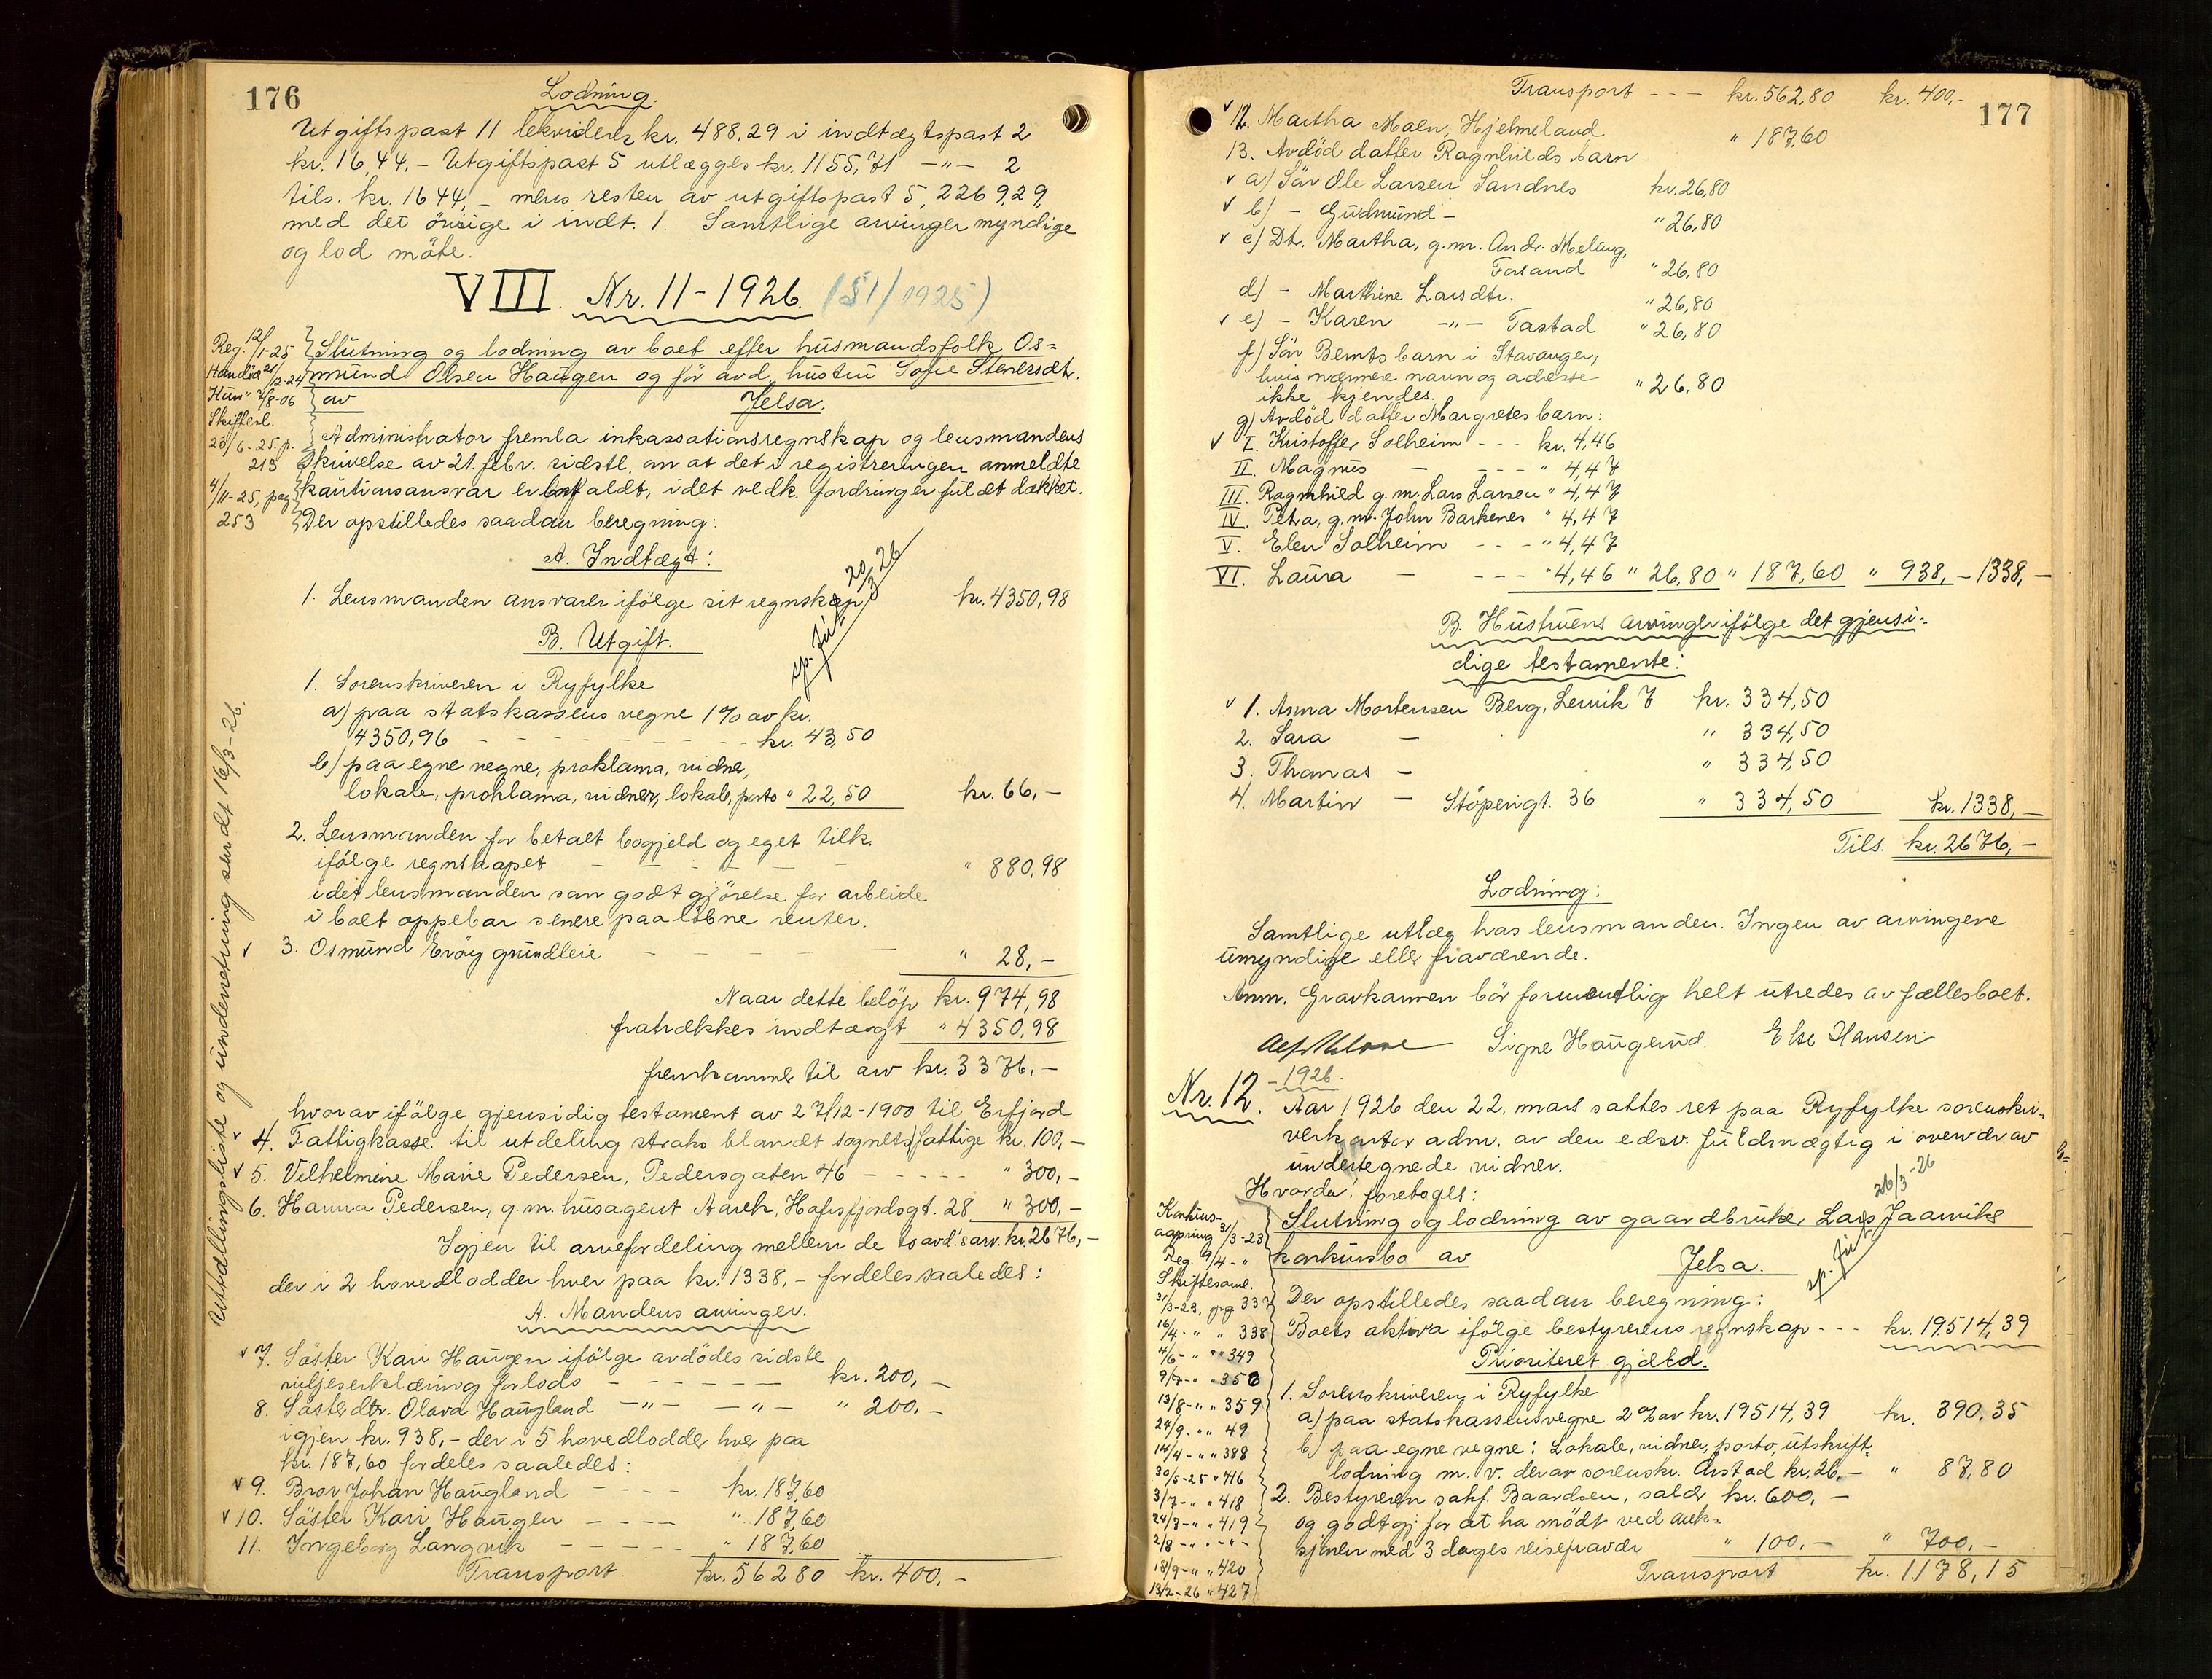 176
Lodning.
Utgiftspost 11 lekvideres kr. 488,29 i indtægtspost 2
kr. 1644,- Utgiftspost 5 utlægges kr. 1155,71 -"- 2
tils. kr. 1644,- mens resten av utgiftspost 5, 2269,29,
med det övrige i indt. 1. Samtlige arvinger myndige
og lod möte.
VIII. Nr. 11-1926. (51/1925)
Reg. 12/1-25
Hand död 21/12-24
Hun " 7/8-06
Skiftesl.
23/6-25 p.
213
4/11-25, pag
253
Slutning og lodning av boet efter husmandsfolk Os=
mund Olsen Haugen og för avd. hustru Sofie Stenersdtr.
av Jelsa.
Administrator fremla inkassationsregnskap og lensmandens
skrivelse av 21. febr. sidstl. om at det i registreringen anmeldte
kautionsansvar er bortfaldt, idet vedk. fordringer fuldt dækket.
Der opstilledes saadan beregning:
A. Indtægt:
1. Lensmanden ansvarer ifölge sit regnskap kr. 4350,98
20/3 26
B. Utgift.
1. Sorenskriveren i Ryfylke
a) paa statskassens vegne 1% av kr.
4350,96 - - - - - - - - kr. 43,50
b) paa egne vegne, proklama, vidner,
lokale, proklama, vidner, lokale, porto " 22,50 kr. 66,-
2. Lensmanden for betalt bogjeld og eget tilk.
ifölge regnskapet - - - - - " 880,98
idet lensmanden som godtgjörelse for arbeide
i boet oppebar senere paalöbne renter.
✓ 3. Osmund Eröy grundleie - - - - " 28,-
Naar dette belöp kr. 974,98
fratrækkes indtægt " 4350,98
fremkommer til arv kr. 3376,-
hvorav ifölge gjensidig testament av 27/12-1900 til Erfjord
✓ 4. Fattigkasse til utdeling straks blandt sognets fattige kr. 100,-
✓ 5. Vilhelmine Marie Pedersen, Pedersgaten 46 - - - - - " 300,-
6. Hanna Pedersen, g.m. husagent Aarek, Hafrsfjordsgt. 28 " 300,-
Igjen til arvefordeling mellem de to avd.'s arv. kr. 2676,-
der i 2 hovedlodder hver paa kr. 1338,- fordeles saaledes:
A. Mandens arvinger.
✓ 7. Söster Kari Haugen ifölge avdödes sidste
viljeserklæring forlods - - - - - - kr. 200,-
8. Sösterdtr. Olava Haugland -"- -"- " 200,-
igjen kr. 938,- der i 5 hovedlodder hver paa
kr. 187,60 fordeles saaledes:
✓ 9. Bror Johan Haugland - - - - kr. 187,60
✓ 10. Söster Kari Haugen - - - - " 187,60
11. Ingeborg Langvik - - - - - " 187,60
Transport kr. 562 80 kr. 400,-
Utdellingsliste og underretning sendt 16/3-26.
177
Transport - - - kr. 562,80 kr. 400,-
✓ 12. Martha Maen, Hjelmeland " 187,60
13. Avdöd datter Ragnhilds barn
✓ a) Sön Ole Larsen Sandnes kr. 26,80
✓ b) - Gudmund - " 26,80
✓ c) Dt. Martha, g.m. Andr. Meling,
Forsand " 26,80
d) - Marthine Larsdtr. " 26,80
✓ e) - Karen -"- Tastad " 26,80
f) Sön Bernts barn i Stavanger,
hvis nærmere navn og adresse
ikke kjendes. " 26,80
g) Avdöd datter Margretes barn:
✓ I. Kristoffer Solheim - - - kr. 4,46
II. Magnus - - - - " 4,47
III. Ragnhild g.m. Lars Larsen " 4,47
IV. Petra, g.m. John Barkenes " 4,47
V. Elen Solheim - - - " 4,47
VI. Laura - - - - " 4,46 " 26,80 " 187,60 " 938,- 1338,-
B. Hustruens arvinger ifölge det gjensi-
dige testamente:
✓ 1. Anna Mortensen Berg, Lervik 7 kr. 334,50
2. Sara - " 334,50
3. Thomas - " 334,50
4. Martin - Stöperigt. 36 " 334,50 kr. 1338,-
Tils. kr. 2676,-
Lodning:
Samtlige utlæg hos lensmanden. Ingen av arvingene
umyndige eller fraværende.
Anm. Gravkammen bör formentlig helt utredes av fællesboet.
Signe Haugerud. Else Hansen
Nr. 12. - 1926.
Aar 1926 den 22. mars sattes ret paa Ryfylke sorenskri-
verkontor adm. av den edsv. fuldmægtig i overvær av
undertegnede vidner.
Hvorda! foretoges:
26/3-26
Slutning og lodning av gaardbruker Lars Jaarviks
konkursbo av Jelsa.
Konkurs-
aapning 3/3-23
Reg. 9/4 - "
Skiftesaml.
31/3-23, pag 337
16/4 - " " 338
4/6 - " " 349
9/7 - " " 356
13/8 - " " 359
24/9 - " " 49
14/4 - " " 388
30/5-25 " 416
3/7 - " " 418
24/7 - " " 419
2/8 - " - " -
18/9 - " " 420
13/2-26 " 427
Der opstilledes saadan beregning:
Boets aktiva ifölge bestyrerens regnskap - - - kr. 19514,39
Prioriteret gjæld.
1. Sorenskriveren i Ryfylke
a) paa statskassens vegne 2% av kr. 19514,39 kr. 390,35
b) paa egne vegne: Lokale, vidner, porto, utskrift,
lodning m.v. derav sorenskr. Årstad kr. 26,- " 87,80
2. Bestyreren sakf. Baardsen, salær kr. 600,-
og godtgj. for at ha mödt ved auk-
sjoner med 3 dages reisefravær " 100,- " 700,-
Transport kr. 1178,15